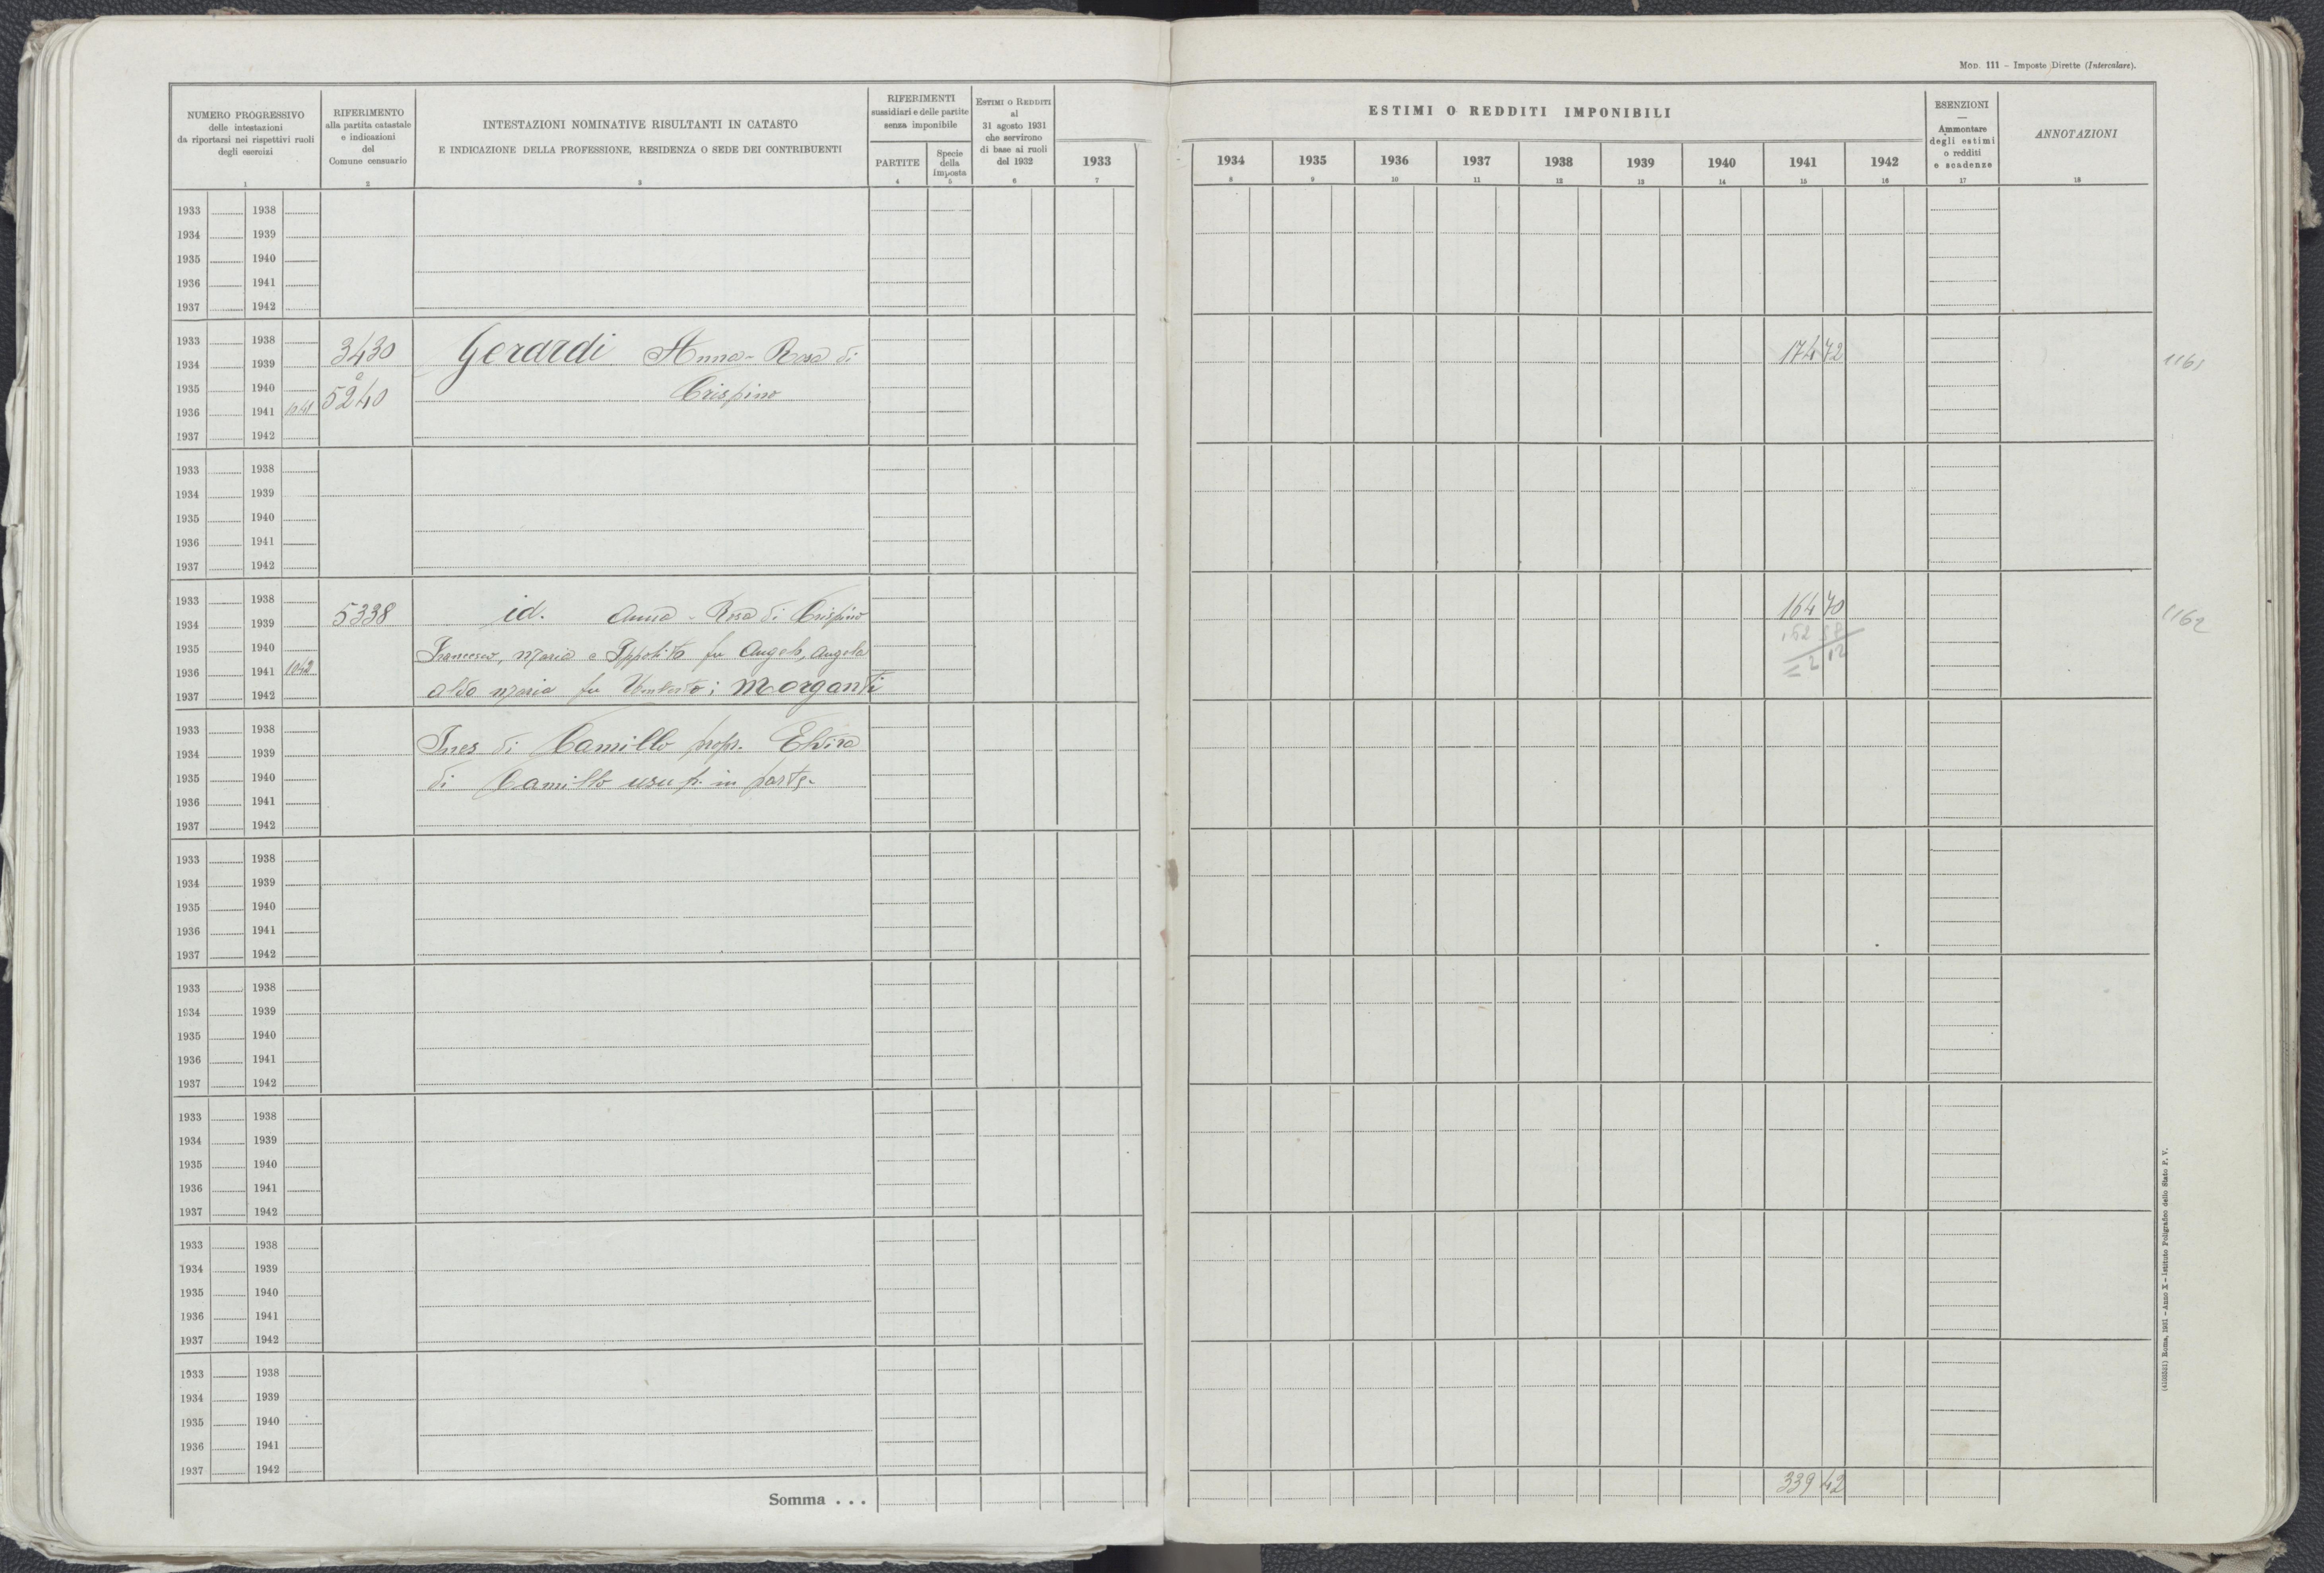 MOD. 111 – Imposte Dirette (Intercalare).
NUMERO PROGRESSIVO
delle intestazioni
da riportarsi nei rispettivi ruoli
degli esercizi
1
RIFERIMENTO
alla partita catastale
e indicazioni
del
Comune censuario
2
INTESTAZIONI NOMINATIVE RISULTANTI IN CATASTO
E INDICAZIONE DELLA PROFESSIONE, RESIDENZA O SEDE DEI CONTRIBUENTI
3
RIFERIMENTI
sussidiari e delle partite
senza imponibile
PARTITE
4
Specie
della
imposta
5
ESTIMI O REDDITI
al
31 agosto 1931
che servirono
di base ai ruoli
del 1932
6
ESTIMI O REDDITI IMPONIBILI
1933
7
1934
8
1935
9
1936
10
1937
11
1938
12
1939
13
1940
14
1941
15
1942
16
ESENZIONI
—
Ammontare
degli estimi
o redditi
e scadenze
17
ANNOTAZIONI
18
1933 1938
1934 1939
1935 1940
1936 1941
1937 1942
1933 1938
1934 1939 3430 Gerardi Anna - Rosa di 174 72 1161
1935 1940
1936 1941 1041 5240 Crispino
1937 1942
1933 1938
1934 1939
1935 1940
1936 1941
1937 1942
1933 1938
1934 1939 5338 id. Anna - Rosa di Crispino 164 70 1162
1935 1940 Francesco, Maria e Ippolito fu Angelo, Angela
1936 1941 1042
1937 1942 Aldo Maria fu Umberto; Morganti
= 2 12
1933 1938
1934 1939 Ines di Camillo propr. Elvira
1935 1940 di Camillo usuf. in parte
1936 1941
1937 1942
1933 1938
1934 1939
1935 1940
1936 1941
1937 1942
1933 1938
1934 1939
1935 1940
1936 1941
1937 1942
1933 1938
1934 1939
1935 1940
1936 1941
1937 1942
1933 1938
1934 1939
1935 1940
1936 1941
1937 1942
1933 1938
1934 1939
1935 1940
1936 1941
1937 1942
Somma . . . 339 42
Roma, 1931 – Anno X – Istituto Poligrafico dello Stato P. V.